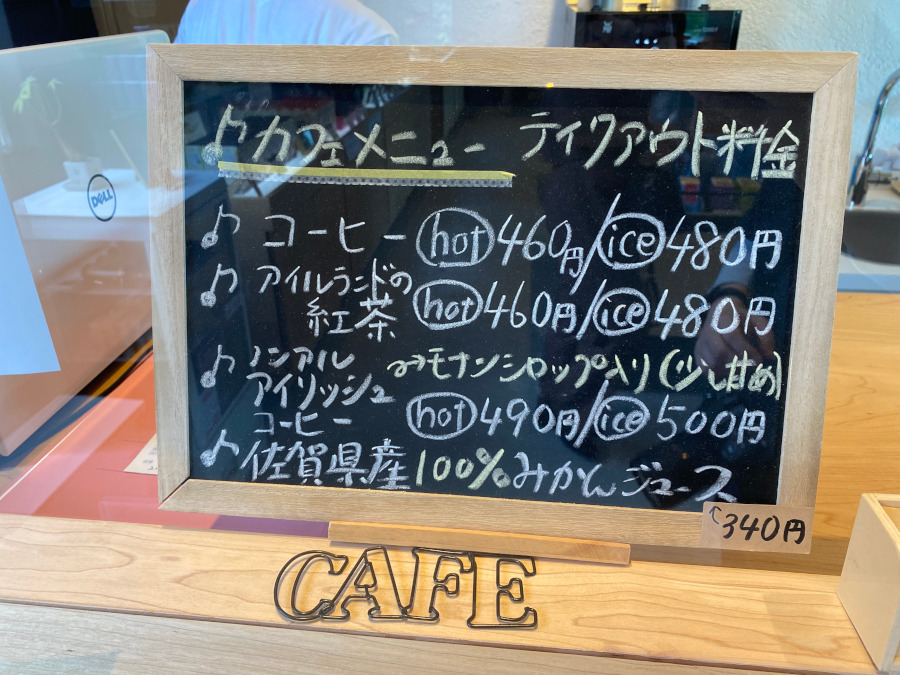 DELL
♪カフェメニュー ティクアウト料金
♪ コーヒー hot 460円/ice 480円
♪ アイルランドの
紅茶 hot 460円/ice 480円
♪ ノンアル →モナンシロップ入り(少し甘め)
アイリッシュ
コーヒー hot 490円/ice 500円
♪ 佐賀県産100%みかんジュース
↑340円
CAFE